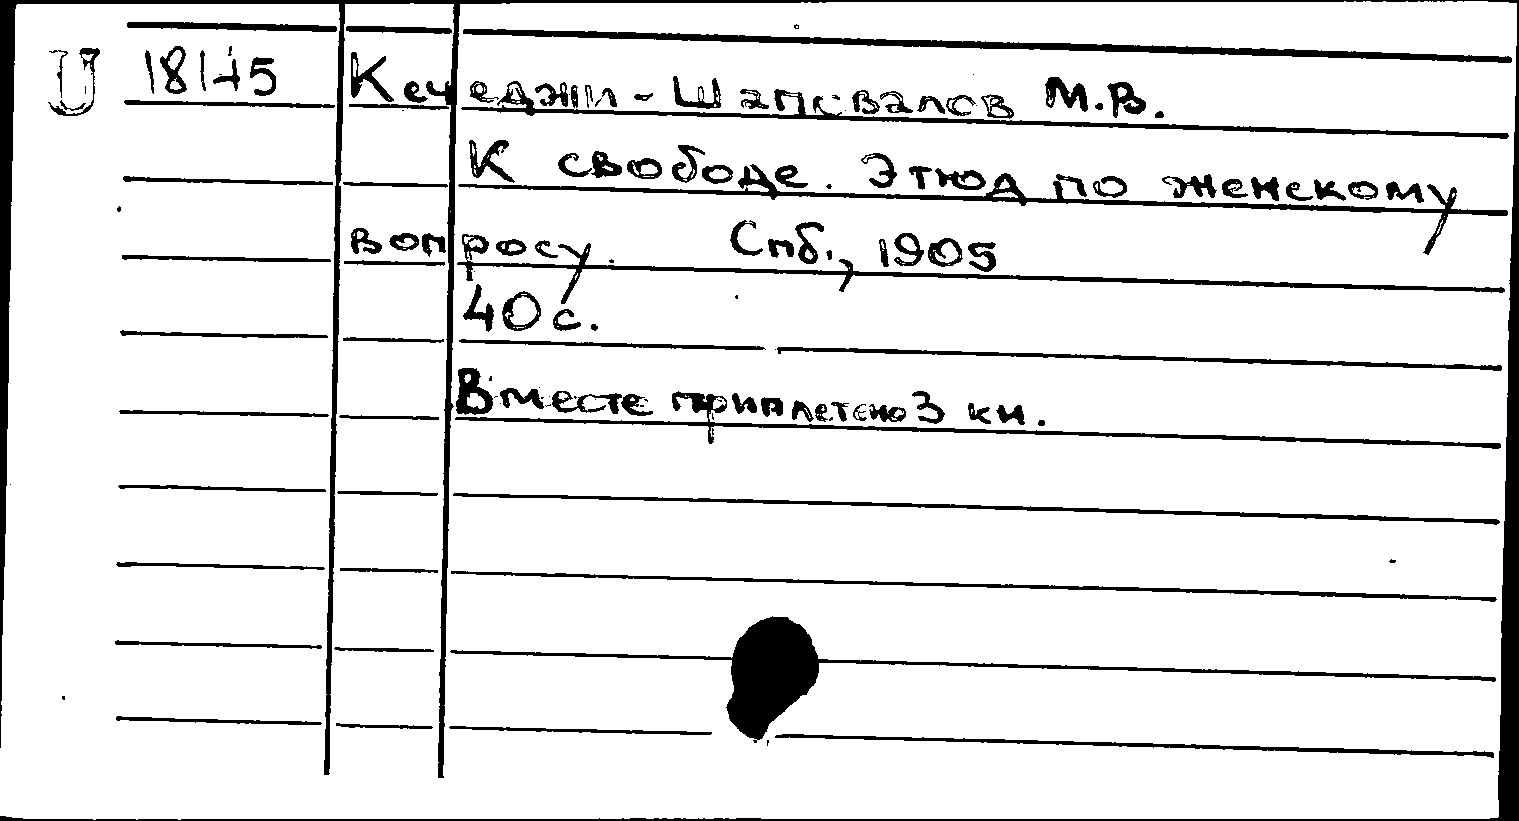 U 18145 Кечеджи-Шаповалов М.В.
К свободе. Этюд по женскому
вопросу. Спб., 1905
40 с.
Вместе приплетено 3 кн.